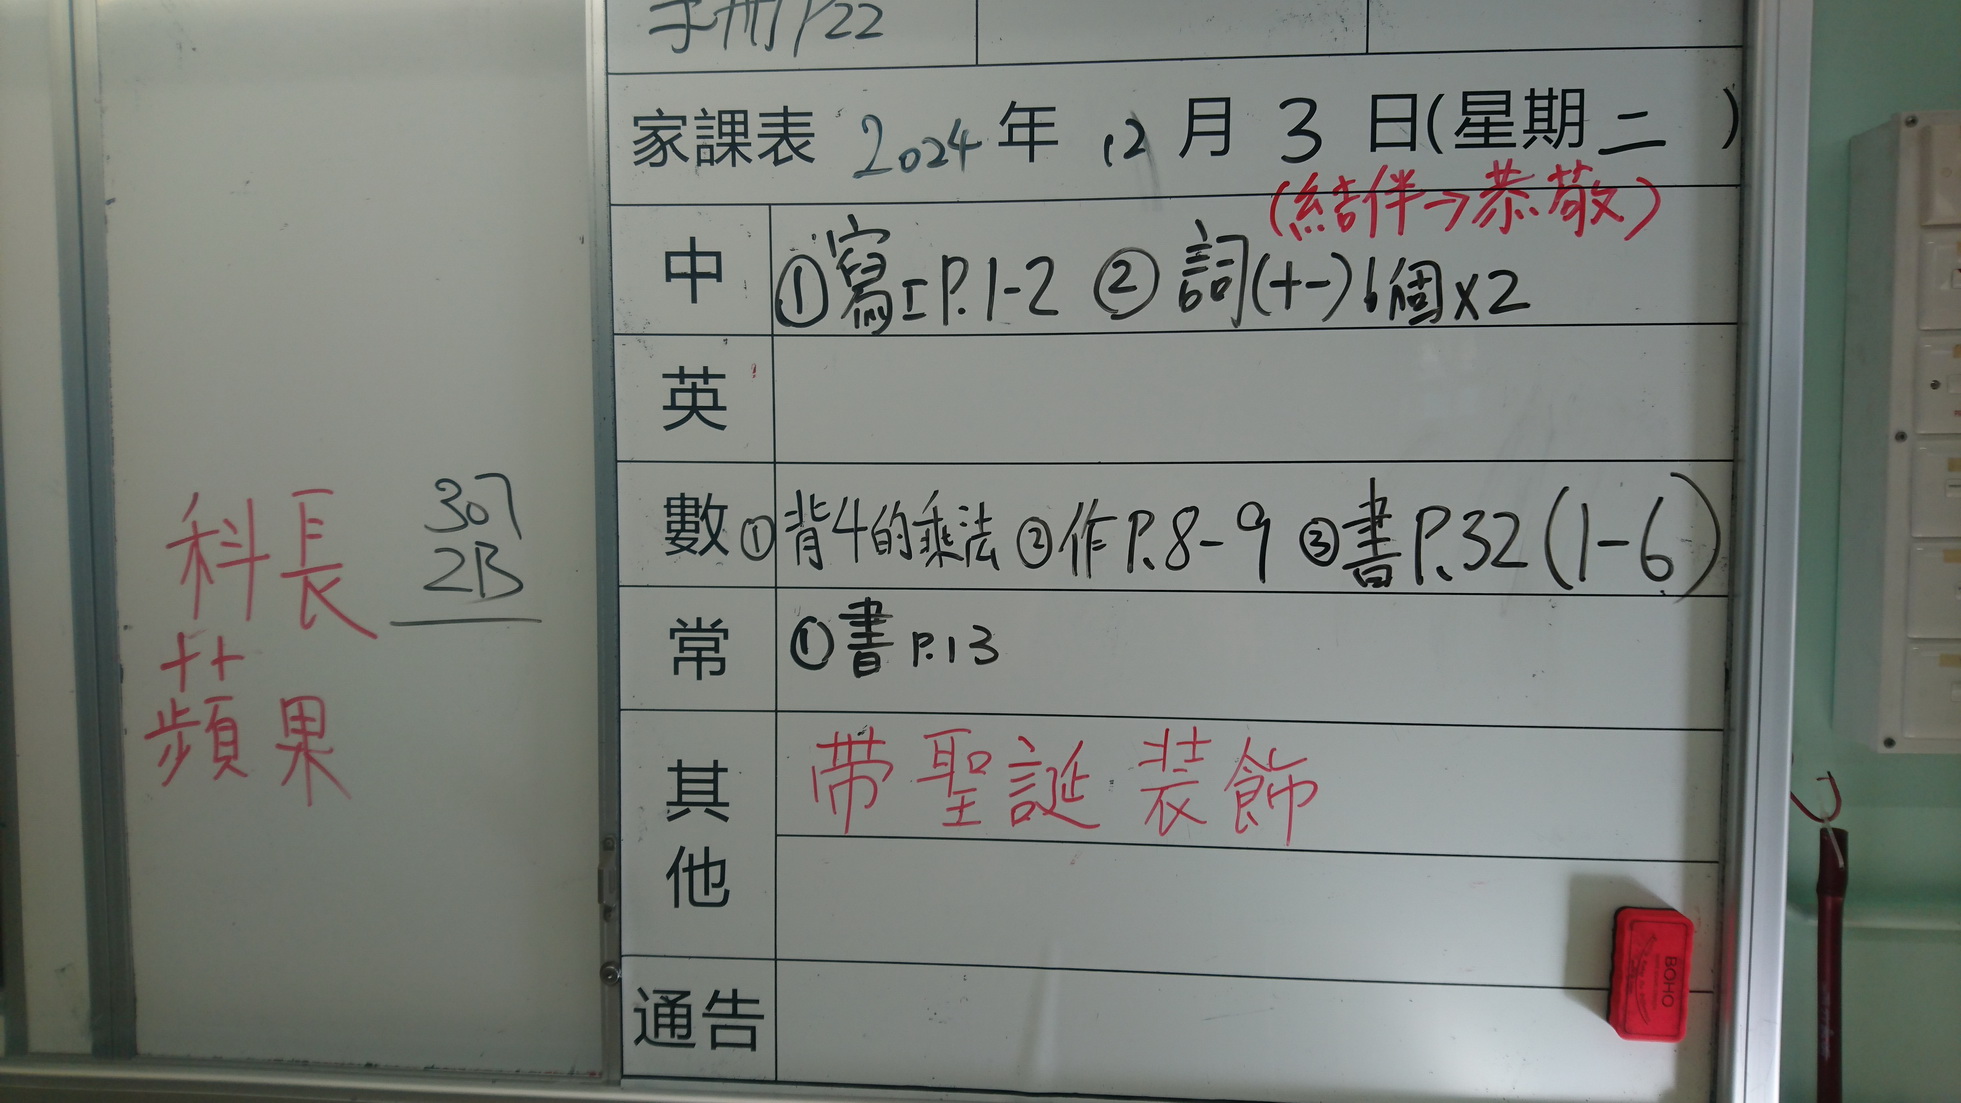 手冊P22
家課表 2024 年 12 月 3 日(星期二)
(結伴→恭敬)
中 ①寫工P.1-2 ②詞(十一)6個x2
英
數 ①背4的乘法 ②作P.8-9 ③書P.32(1-6)
常 ①書P.13
其他 帶聖誕裝飾
通告
科長
蘋果
307
2B
BOHO